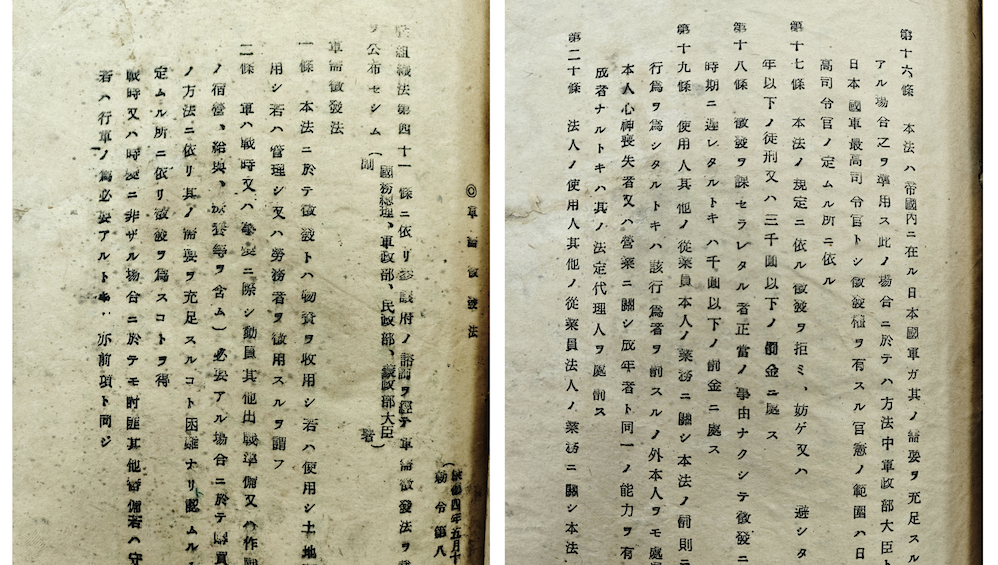 ◎軍需徵發法
(康德四年五月十
勅令第八
組織法第四十一條ニ依リ參議府ノ諮詢ヲ經テ軍需徵發法ヲ
ヲ公布セシム
(國務總理、軍政部、民政部、財政部大臣
副署)
軍需徵發法
一條 本法ニ於テ徵發トハ物資ヲ收用シ若ハ使用シ土地
用シ若ハ管理シ又ハ勞務者ヲ徵用スルヲ謂フ
二條 軍ハ戰時又ハ事變ニ際シ動員其他出戰準備又ハ作戰
ノ宿營、給與、療養等ヲ含ム)必要アル場合ニ於テ購買
ノ方法ニ依リ其ノ需要ヲ充足スルコト困難ナリ認ムル
定ムル所ニ依リ徵發ヲ爲スコトヲ得
戰時又ハ時變ニ非ザル場合ニ於テモ討匪其他警備若ハ守
若ハ行軍ノ爲必要アルトキ亦前項ト同ジ
第十六條 本法ハ帝國內ニ在ル日本國軍ガ其ノ需要ヲ充足スル
アル場合之ヲ準用ス此ノ場合ニ於テハ方法中軍政部大臣ト
日本國軍最高司令官トシ徵發權ヲ有スル官憲ノ範圍ハ日
高司令官ノ定ムル所ニ依ル
第十七條 本法ノ規定ニ依ル徵發ヲ拒ミ、妨ゲ又ハ 避シタ
年以下ノ徒刑又ハ三千圓以下ノ罰金ニ處ス
第十八條 徵發ヲ課セラレタル者正當ノ事由ナクシテ徵發ニ
時期ニ遲レタルトキハ千圓以下ノ罰金ニ處ス
第十九條 使用人其他ノ從業員本人ノ業務ニ關シ本法ノ罰則ニ
行爲ヲ爲シタルトキハ該行爲者ヲ罰スルノ外本人ヲモ處
本人心神喪失者又ハ營業ニ關シ成年者ト同一ノ能力ヲ有
成者ナルトキハ其ノ法定代理人ヲ處罰ス
第二十條 法人ノ使用人其他ノ從業員法人ノ業務ニ關シ本法